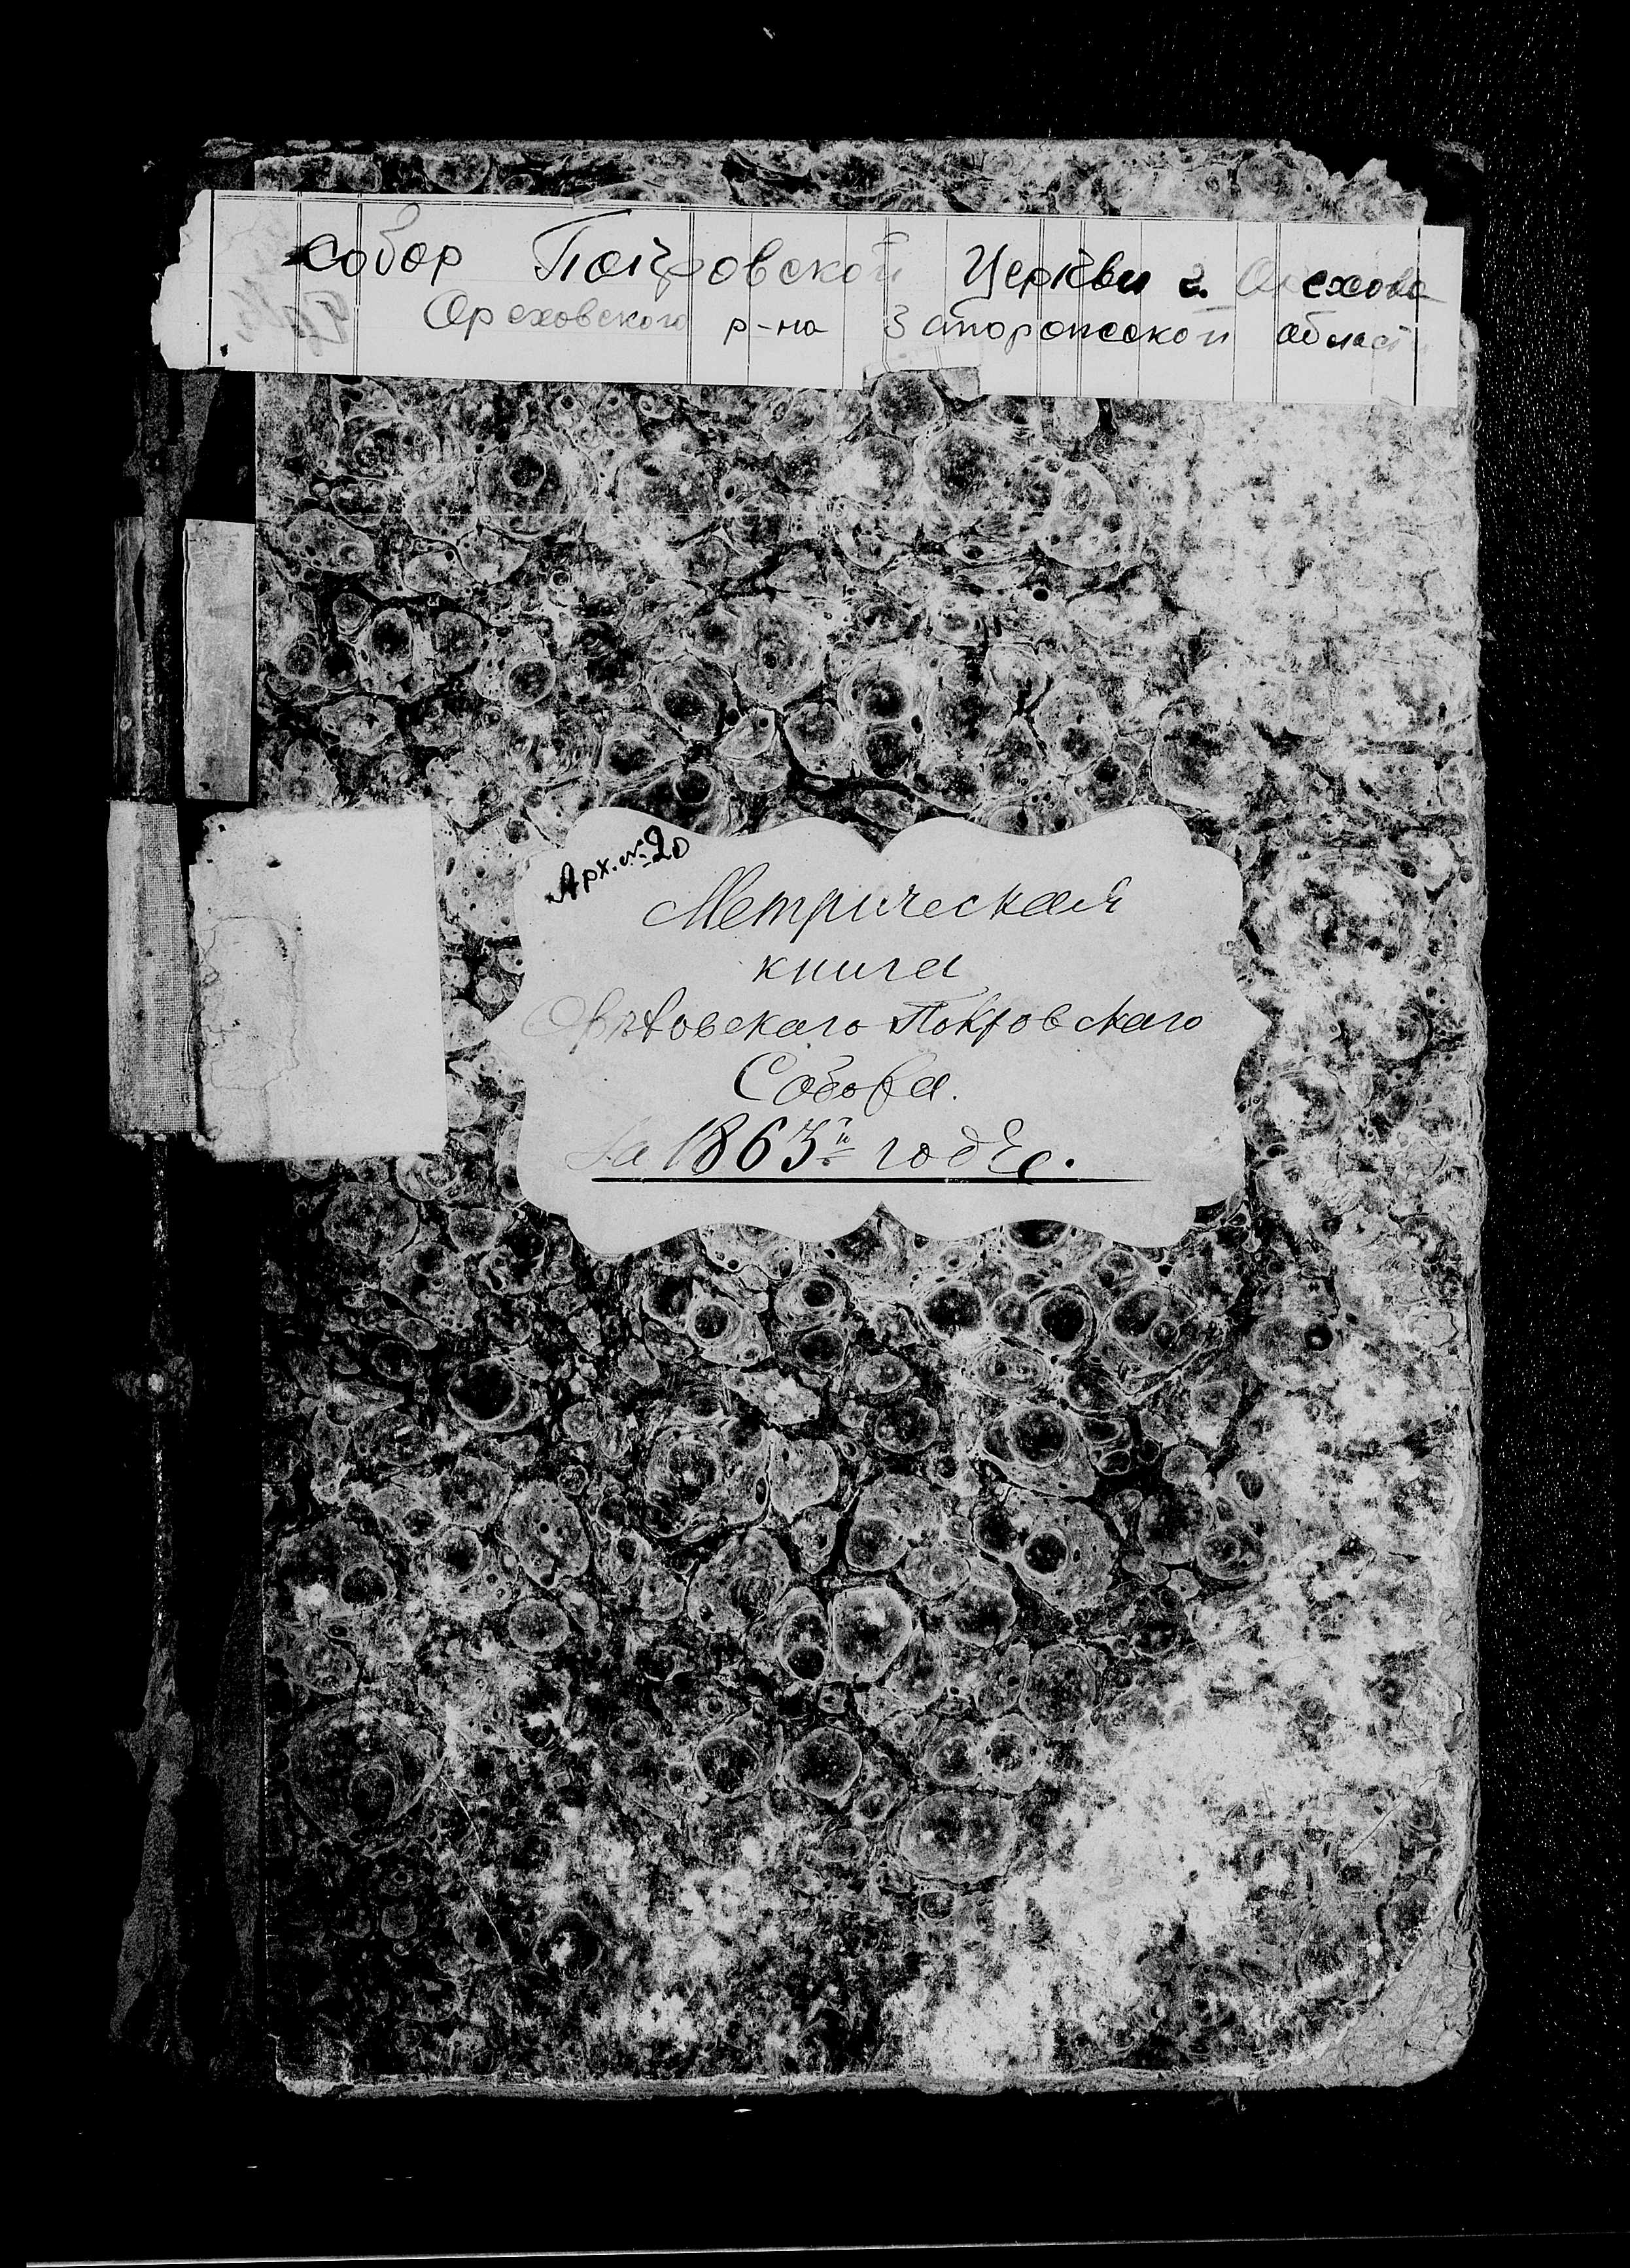 собор Покровской Церкви г. Орехова
Ореховского р-на Запорожской област
Арх. № 20
Метрическая
книга
Орѣховскаго Покровскаго
Собора.
За 1863й годъ.